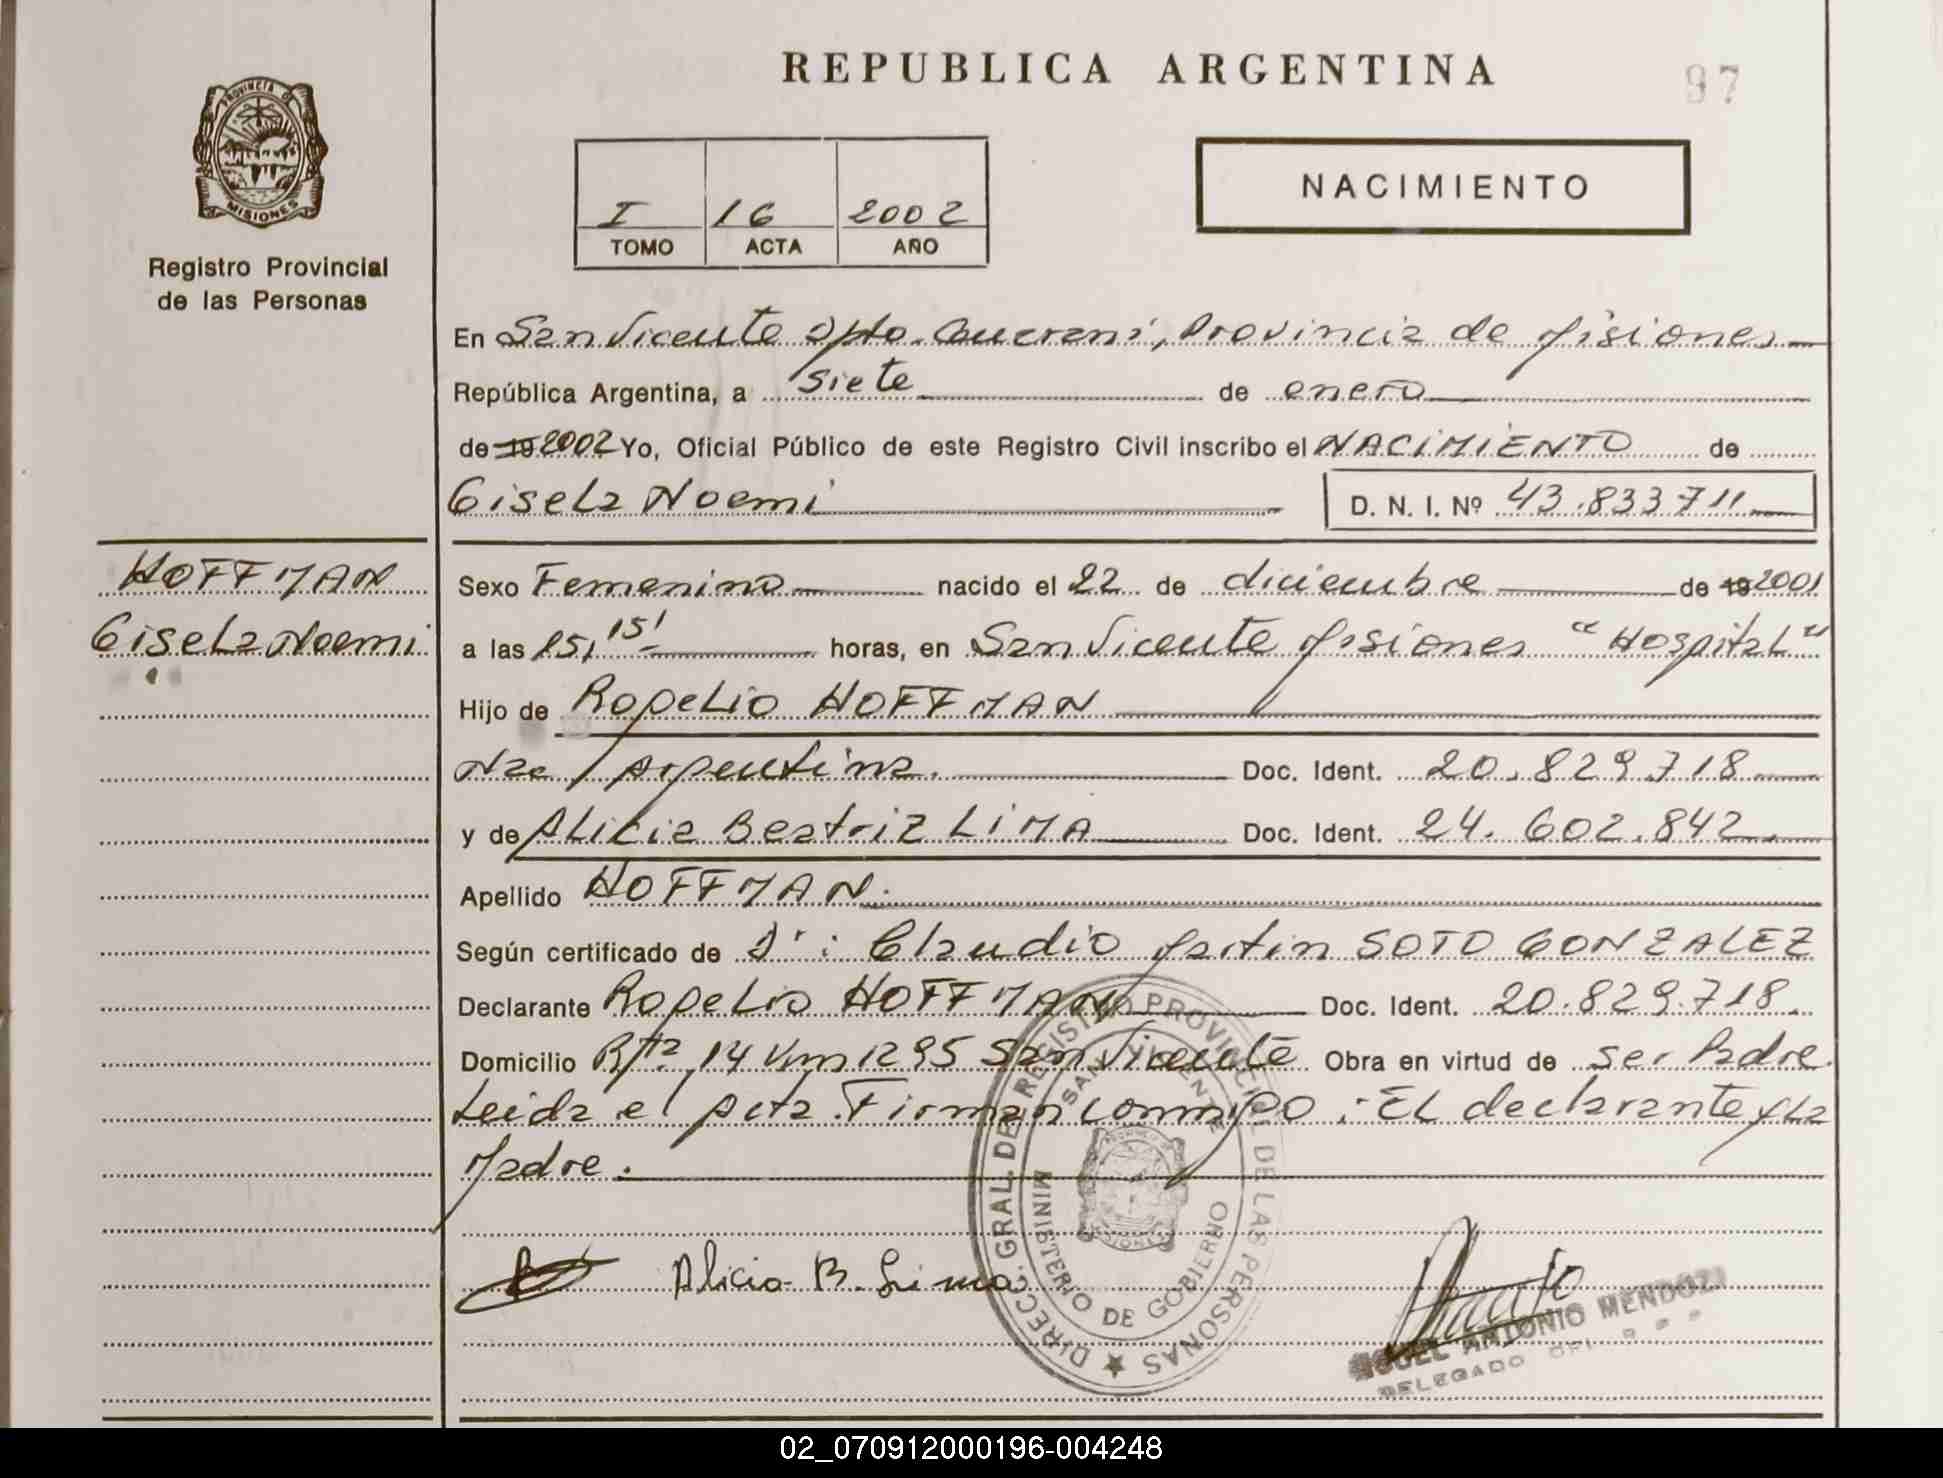 REPUBLICA ARGENTINA
97
PROVINCIA DE
MISIONES
Registro Provincial
de las Personas
I 16 2002
TOMO ACTA AÑO
NACIMIENTO
En San Vicente Dpto. Guarani, Provincia de Misiones
República Argentina, a siete de enero
de 19 2002 Yo, Oficial Público de este Registro Civil inscribo el NACIMIENTO de
Gisela Noemi D. N. I. Nº 43.833.711
HOFFMAN
Gisela Noemi
Sexo Femenino nacido el 22 de diciembre de 19 2001
a las 15,15' horas, en San Vicente Misiones "Hospital"
Hijo de Rogelio HOFFMAN
Nac Argentina. Doc. Ident. 20.829.718
y de Alicia Beatriz LIMA Doc. Ident. 24.602.842
Apellido HOFFMAN.
Según certificado de Dr: Claudio Martin SOTO GONZALEZ
Declarante Rogelio HOFFMAN Doc. Ident. 20.829.718.
Domicilio Rta. 14 Km 1295 San Vicente Obra en virtud de ser Padre.
Leida el Acta. Firman conmigo: El declarante y La
Madre.
Alicia B. Lima
DIRECC. GRAL. DE REGISTRO PROVINCIAL DE LAS PERSONAS
SAN VICENTE
MINISTERIO DE GOBIERNO
MISIONES
ANTONIO MENDOZA
DELEGADO
02_070912000196-004248